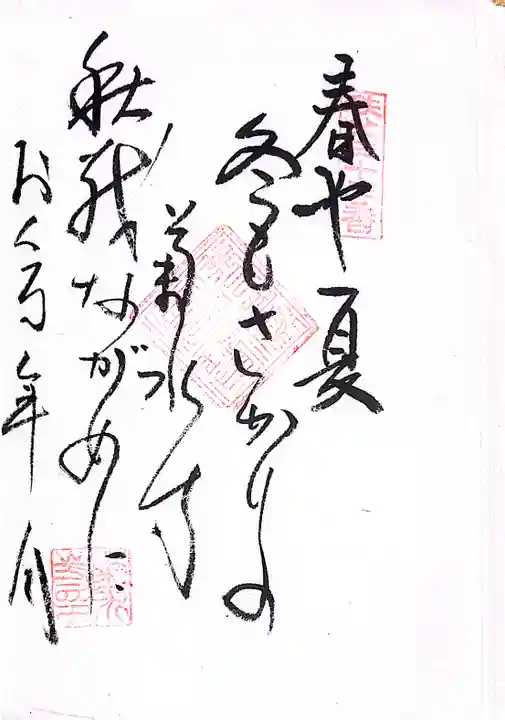 春や夏
冬もさかりの
菊水寺
秋のながめに
おくる年月